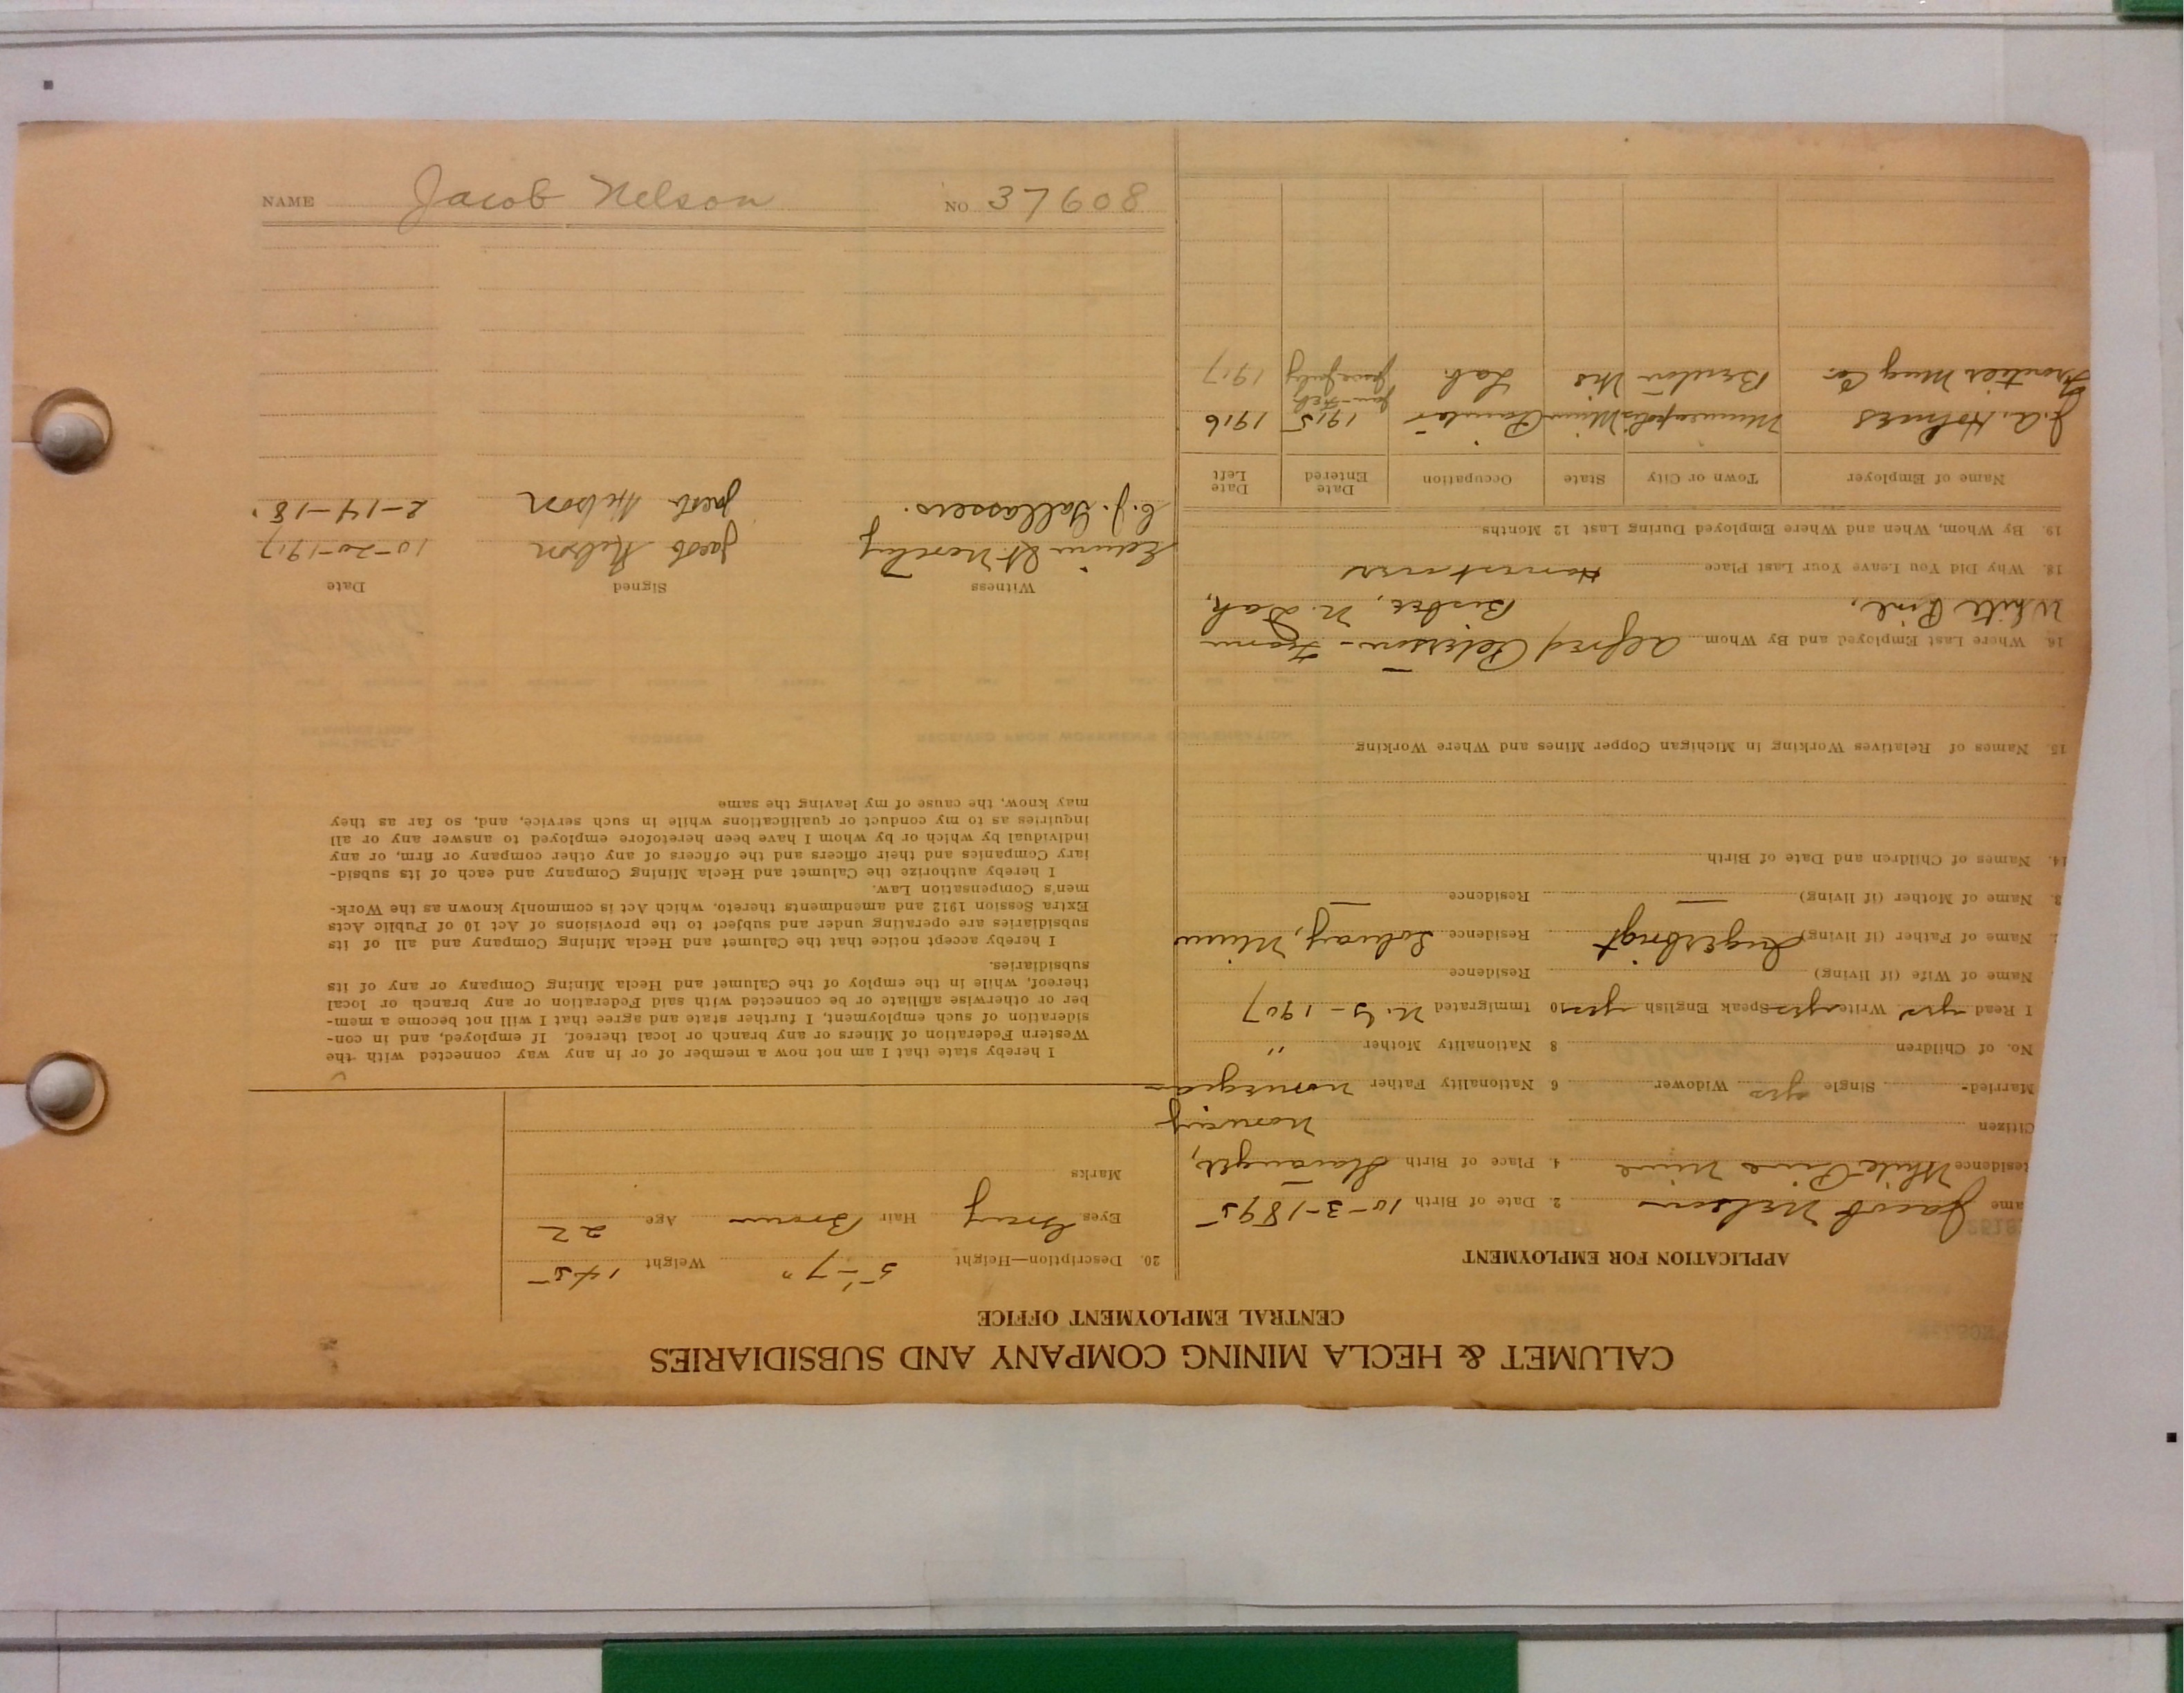 CALUMET & HECLA MINING COMPANY AND SUBSIDIARIES
CENTRAL EMPLOYMENT OFFICE
APPLICATION FOR EMPLOYMENT
ame Jacob Nelson 2. Date of Birth 10-3-1895
Residence White Pine Mine 4. Place of Birth Stavanger,
Citizen Norway
Married- Single yes Widower 6 Nationality Father Norwegian
No. of Children 8 Nationality Mother "
I Read yes Write yes Speak English yes 10 Immigrated N.Y - 1907
Name of Wife (if living) Residence
Name of Father (if living) Ingerbrigt Residence Solway, Minn
3. Name of Mother (if living) — Residence —
14. Names of Children and Date of Birth
15. Names of Relatives Working in Michigan Copper Mines and Where Working
16. Where Last Employed and By Whom Alfred Peterson - Farm
White Pine. Bisbee, N. Dak,
18. Why Did You Leave Your Last Place
19. By Whom, When and Where Employed During Last 12 Months
Name of Employer Town or City State Occupation Date Entered Date Left
J. A. Holmes Minneapolis Minn 1915 1916
Jan-Feb
Frontier Mung Co. Benton Wis Lab. June July 1917
20. Description—Height 5'-7" Weight 145
Eyes Gray Hair Brown Age 22
Marks
I hereby state that I am not now a member of or in any way connected with the
Western Federation of Miners or any branch or local thereof. If employed, and in con-
sideration of such employment, I further state and agree that I will not become a mem-
ber or otherwise affiliate or be connected with said Federation or any branch or local
thereof, while in the employ of the Calumet and Hecla Mining Company or any of its
subsidiaries.
I hereby accept notice that the Calumet and Hecla Mining Company and all of its
subsidiaries are operating under and subject to the provisions of Act 10 of Public Acts
Extra Session 1912 and amendments thereto, which Act is commonly known as the Work-
men's Compensation Law.
I hereby authorize the Calumet and Hecla Mining Company and each of its subsid-
iary Companies and their officers and the officers of any other company or firm, or any
individual by which or by whom I have been heretofore employed to answer any or all
inquiries as to my conduct or qualifications while in such service, and, so far as they
may know, the cause of my leaving the same
Witness Signed Date
Edwin Jacob Nelson 10-20-1917
C. J. Jacob Nelson 2-14-18.
NAME Jacob Nelson NO 37608